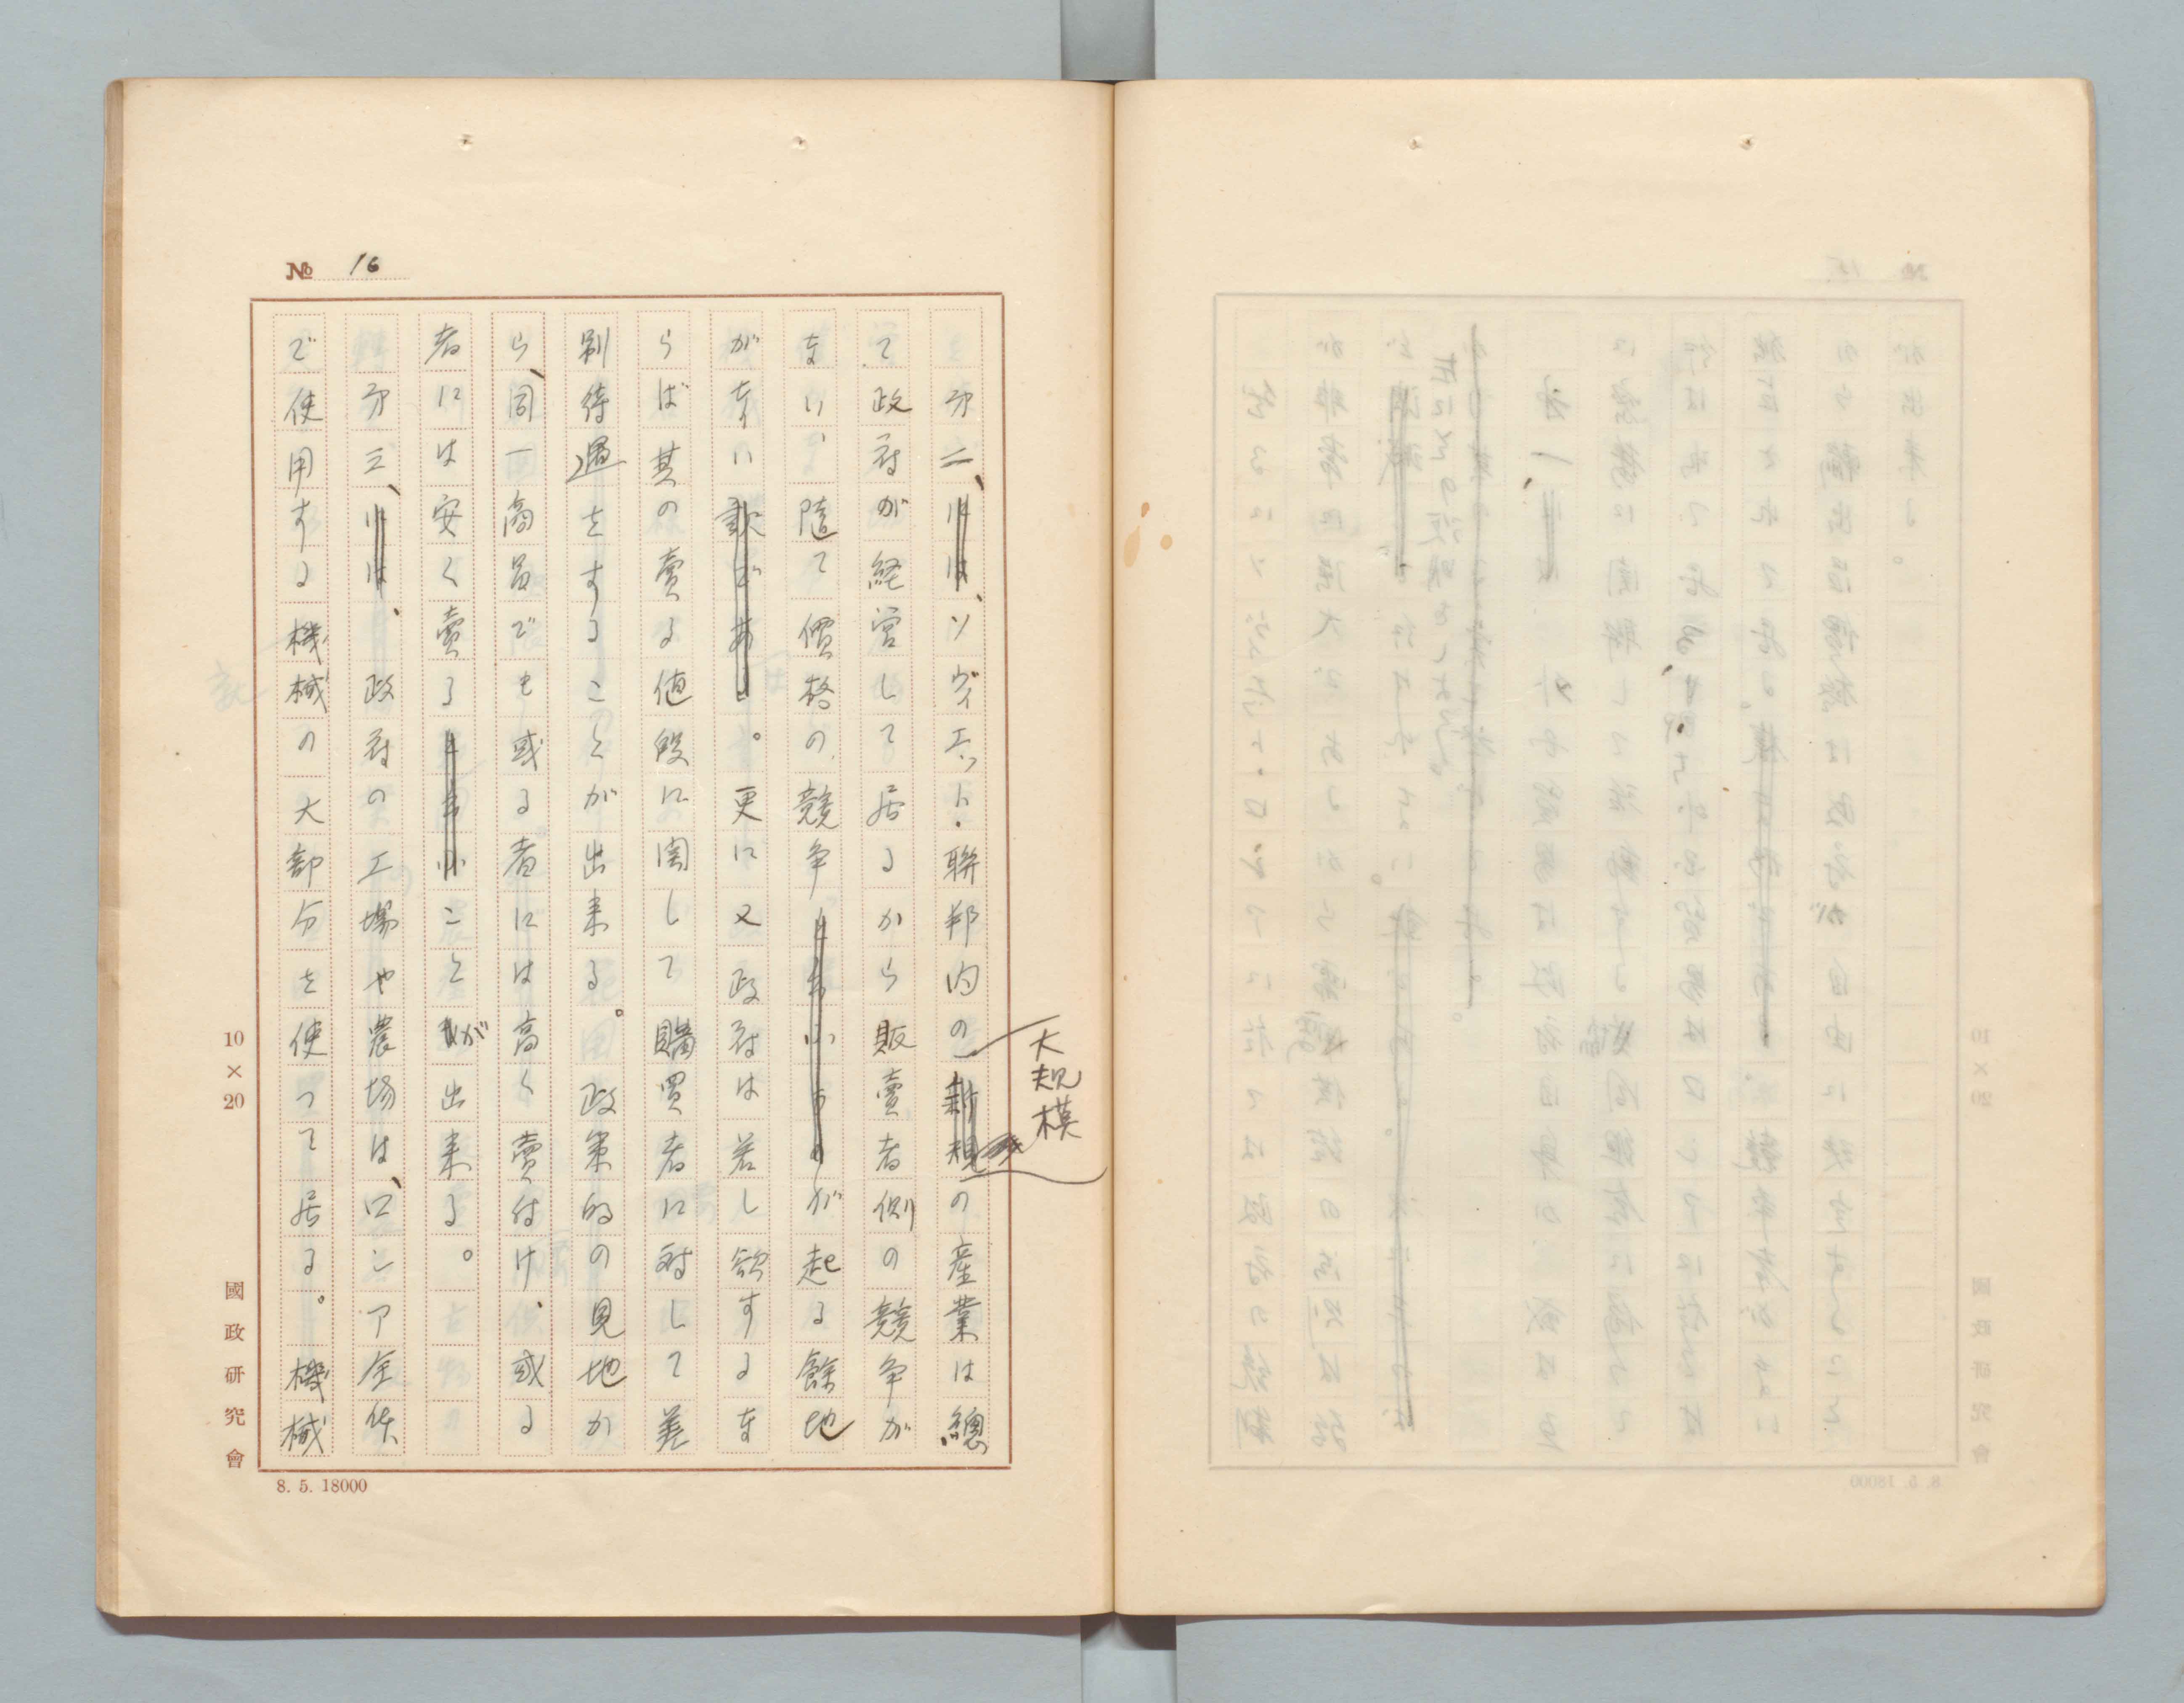 № 16
大規模
才二、には、ソヴィエット・聯邦内の新規の産業は總
て政府が経営して居るから販賣者側の競争が
ない、隨て價格の競争が起る餘地
がない。更に又政府は若し欲するな
らば其の賣る値段に関して購買者に対して差
別待遇をすることが出来る。政策的の見地か
ら、同一商品でも或る者には高く賣付け、或る
者には安く賣ることが出来る。
才三、には、政府の工場や農場は、ロシア全体
で使用する機械の大部分を使つて居る。機械
10×20
國政研究會
8. 5. 18000